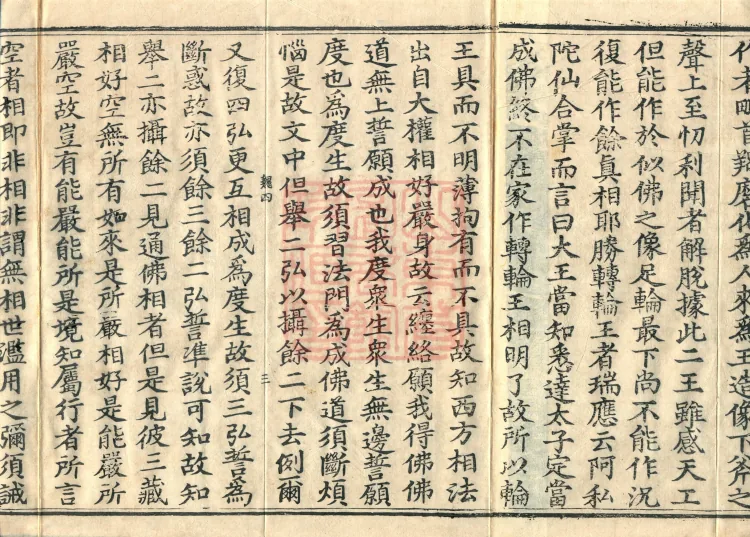 作者略首羯磨作爲人來爲王造像下斧之
聲上至忉利聞者解脫據此二王雖感天工
但能作於似佛之像足輪最下尚不能作況
復能作餘真相耶勝轉輪王者瑞應云阿私
陀仙合掌而言曰大王當知悉達太子定當
成佛終不在家作轉輪王相明了故所以輪
王具而不明薄拘有而不具故知西方相法
出自大權相好嚴身故云纏絡願我得佛佛
道無上誓願成也我度衆生衆生無邊誓願
度也爲度生故須習法門爲成佛道須斷煩
惱是故文中但舉二弘以攝餘二下去例爾
三
又復四弘更互相成爲度生故須三弘誓爲
斷惑故亦須餘三餘二弘誓準說可知故知
舉二亦攝餘二見通佛相者但是見彼三藏
相好空無所有如來是所嚴相好是能嚴所
嚴空故豈有能嚴能所是境知屬行者所言
空者相即非相非謂無相世濫用之彌須誠